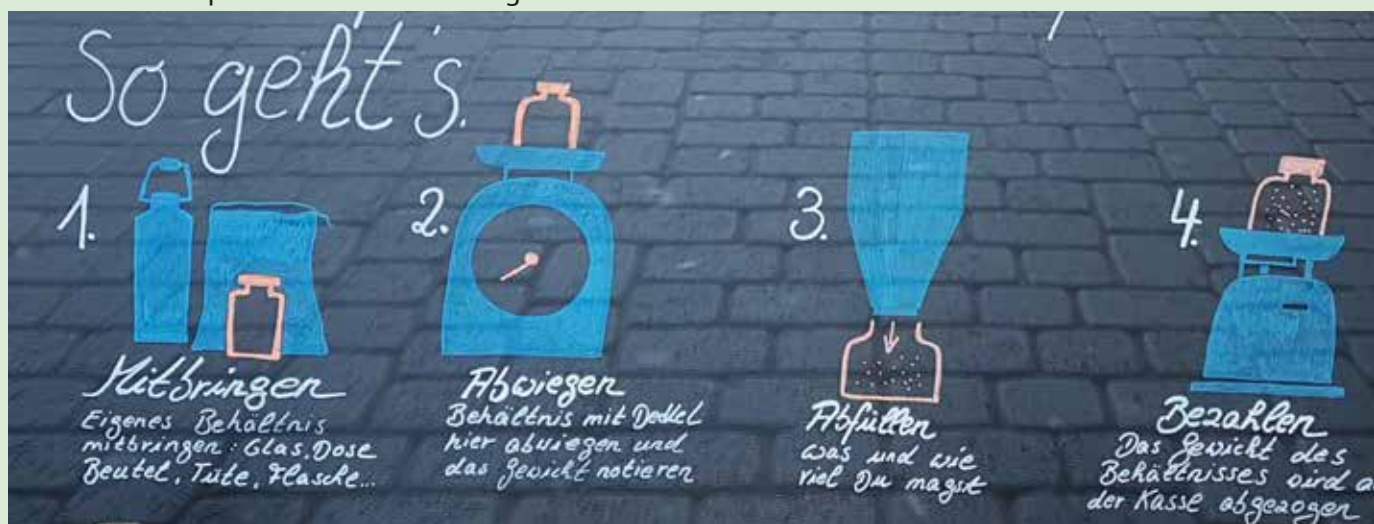 So geht's.
1.
Mitbringen
Eigenes Behältnis
mitbringen: Glas, Dose
Beutel, Tüte, Flasche...
2.
Abwiegen
Behältnis mit Deckel
hier abwiegen und
das Gewicht notieren
3.
Abfüllen
was und wie
viel Du magst
4.
Bezahlen
Das Gewicht des
Behältnisses wird
der Kasse abgezogen